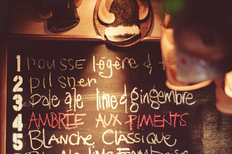 1 MOUSSE légère &
2 pilsner
3 Pale ale lime & gingembre
4 AMBRÉE AUX PIMENTS
5 BLANCHE CLASSIQUE